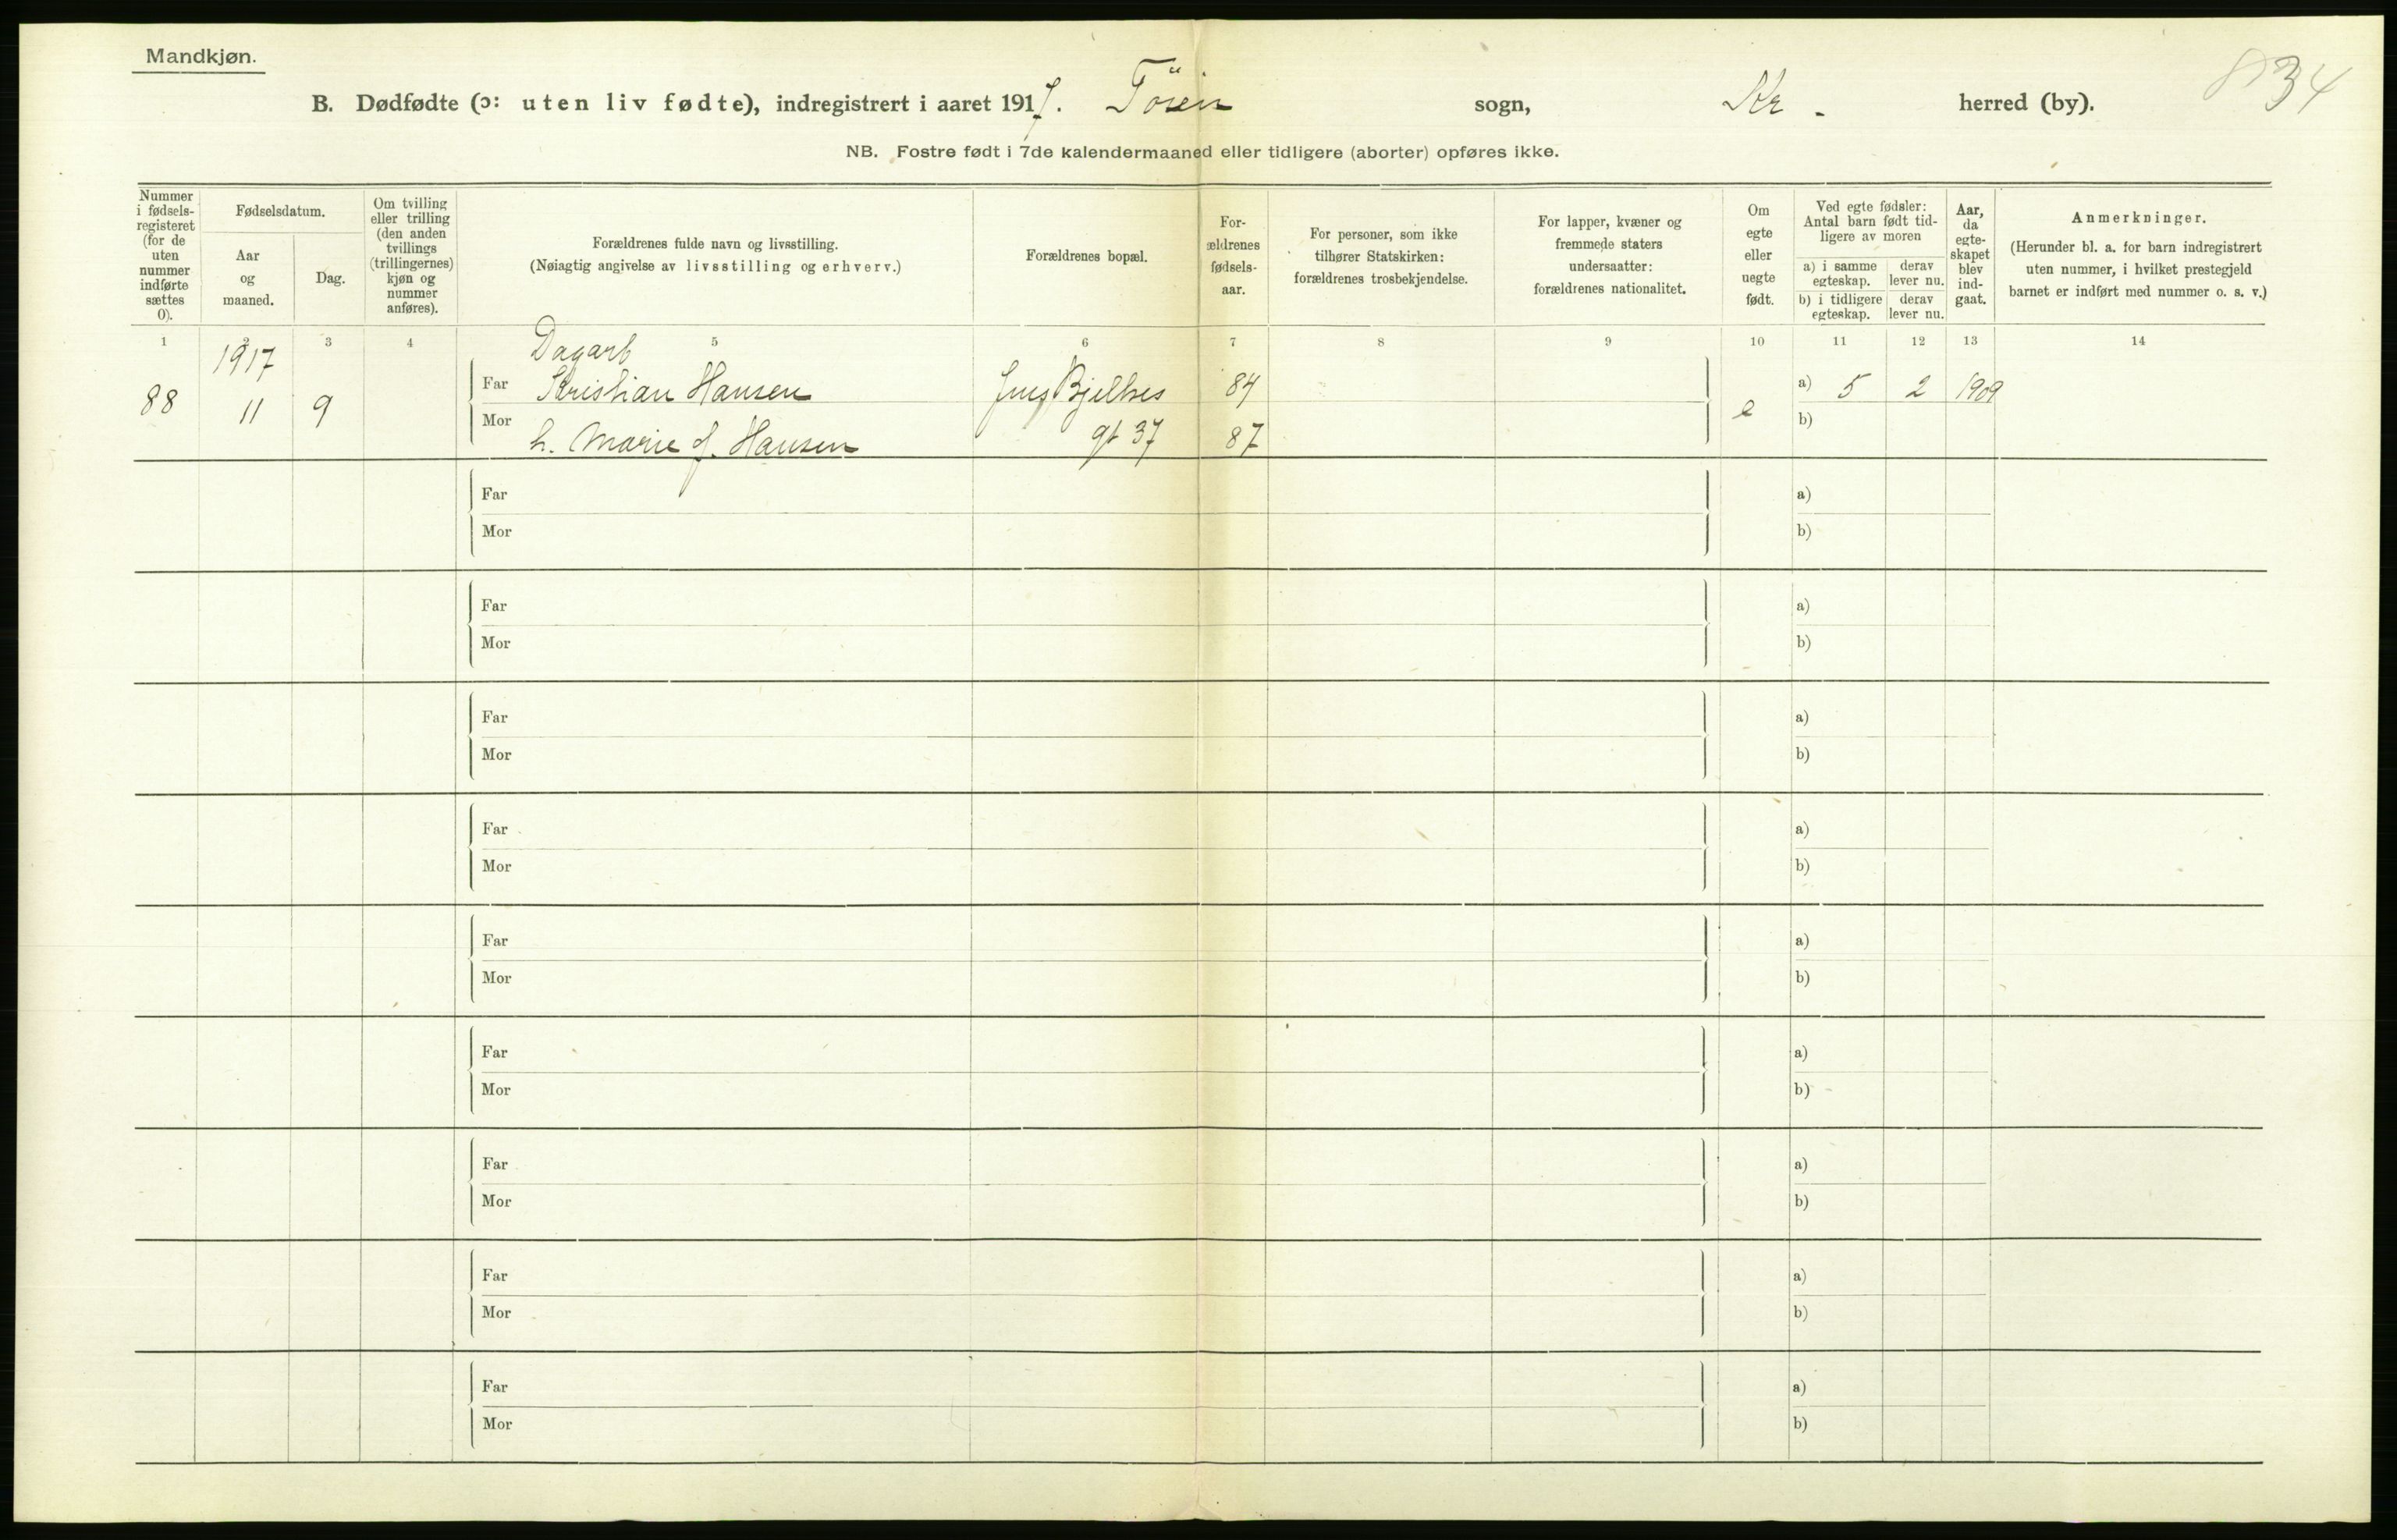 Mandkjøn.
834
B. Dødfødte (ɔ: uten liv fødte), indregistrert i aaret 1917. Töien sogn, Kr. herred (by).
NB. Fostre født i 7de kalendermaaned eller tidligere (aborter) opføres ikke.
Nummer i fødsels-registeret (for de uten nummer indførte sættes 0).
Fødselsdatum.
Aar og maaned.
Dag.
Om tvilling eller trilling (den anden tvillings (trillingernes) kjøn og nummer anføres).
Forældrenes fulde navn og livsstilling.
(Nøiagtig angivelse av livsstilling og erhverv.)
Forældrenes bopæl.
For-ældrenes fødsels-aar.
For personer, som ikke tilhører Statskirken: forældrenes trosbekjendelse.
For lapper, kvæner og fremmede staters undersaatter: forældrenes nationalitet.
Om egte eller uegte født.
Ved egte fødsler: Antal barn født tid-ligere av moren
a) i samme egteskap.
derav lever nu.
b) i tidligere egteskap.
derav lever nu.
Aar, da egte-skapet blev ind-gaat.
Anmerkninger.
(Herunder bl. a. for barn indregistrert uten nummer, i hvilket prestegjeld barnet er indført med nummer o. s. v.)
1 2 3 4 5 6 7 8 9 10 11 12 13 14
1917 Dagarb
Far Kristian Hansen Jens Bjelkes 84 a) 5 2 1909
88 11 9 e
Mor b)
h. Marie f. Hansen gt 37 87
Far a)
Mor b)
Far a)
Mor b)
Far a)
Mor b)
Far a)
Mor b)
Far a)
Mor b)
Far a)
Mor b)
Far a)
Mor b)
Far a)
Mor b)
Far a)
Mor b)